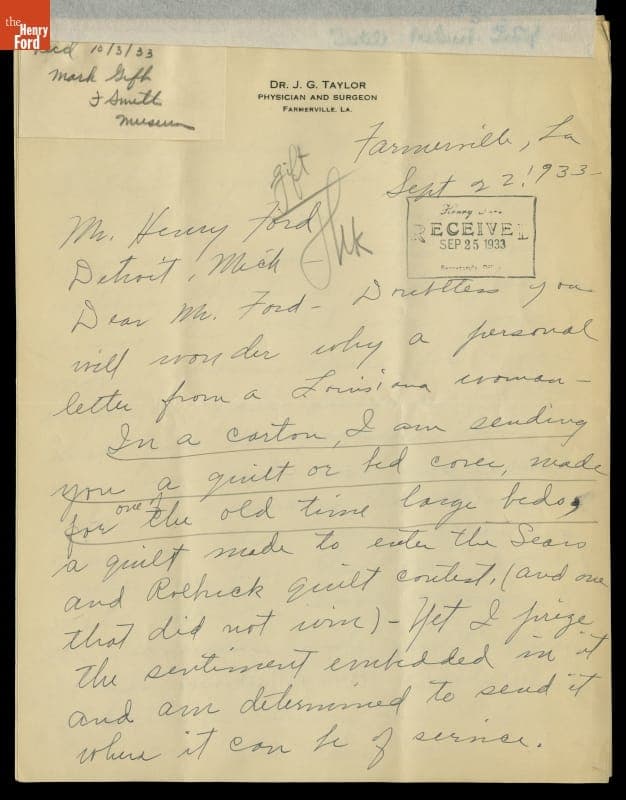 the
Henry
Ford
Rec'd 10/3/33
Mark Gift
F Smith
Museum
DR. J. G. TAYLOR
PHYSICIAN AND SURGEON
FARMERVILLE, LA.
Farmerville, La
Sept 22, 1933
gift
Mr. Henry Ford
Detroit, Mich -
Henry
RECEIVED
SEP 25 1933
Dear Mr. Ford - Doubtless you
will wonder why a personal
letter from a Louisiana woman -
In a carton, I am sending
you a quilt or bed cover, made
for one of the old time large beds,
a quilt made to enter the Sears
and Roebuck quilt contest, (and one
that did not win) - Yet I prize
the sentiment embedded in it
and am determined to send it
where it can be of service.